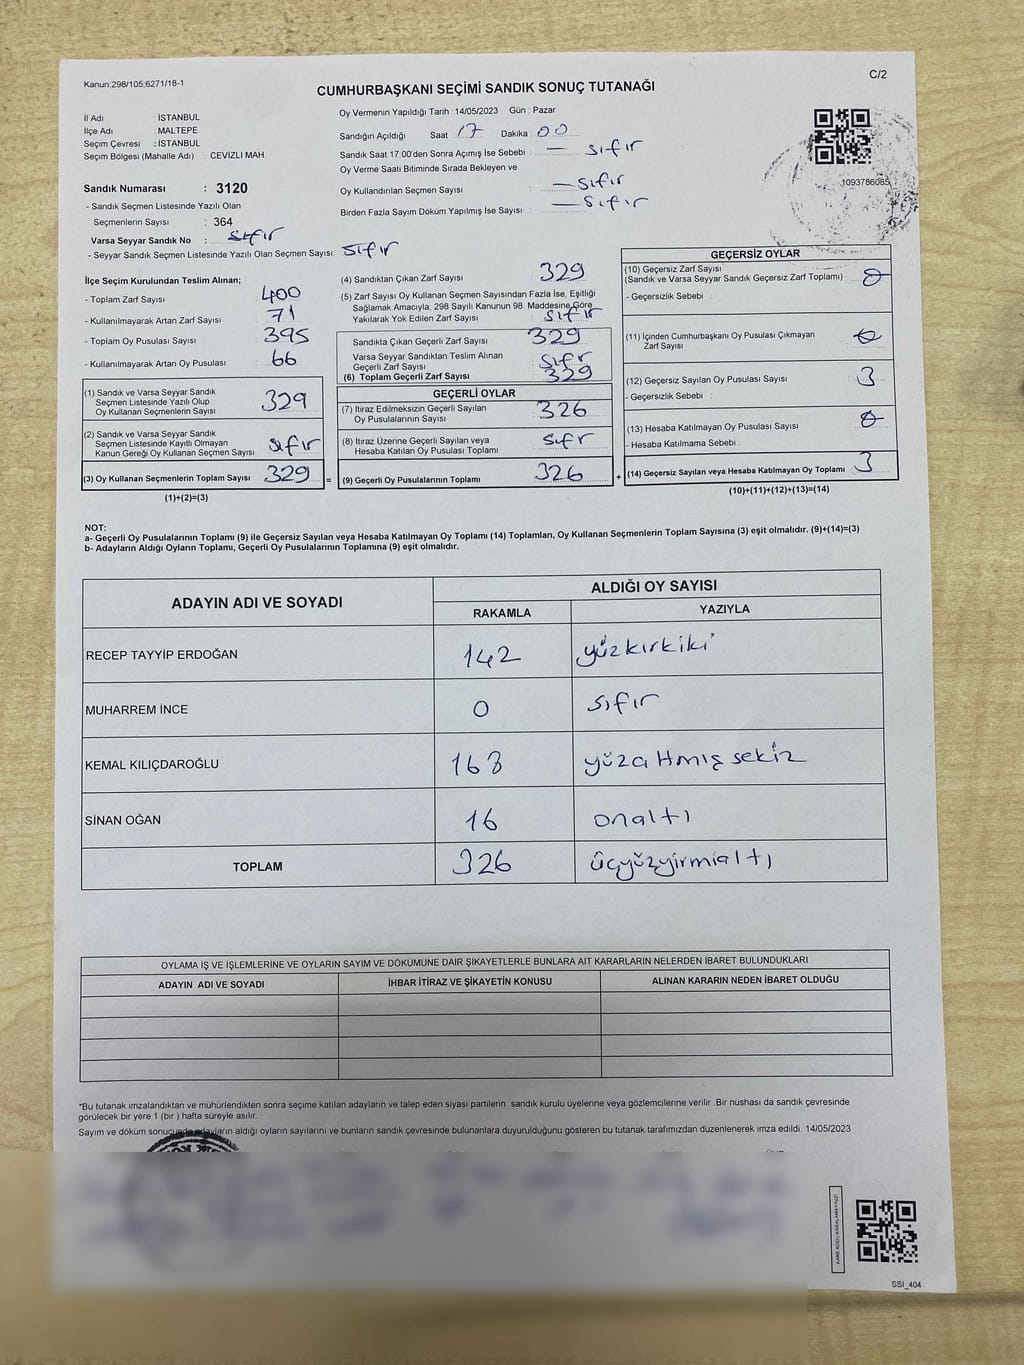 Kanun:298/105;6271/18-1
C/2
CUMHURBAŞKANI SEÇİMİ SANDIK SONUÇ TUTANAĞI
İl Adı : İSTANBUL
İlçe Adı : MALTEPE
Seçim Çevresi : İSTANBUL
Seçim Bölgesi (Mahalle Adı) : CEVİZLİ MAH.
Sandık Numarası : 3120
- Sandık Seçmen Listesinde Yazılı Olan
Seçmenlerin Sayısı : 364
Varsa Seyyar Sandık No : sıfır
- Seyyar Sandık Seçmen Listesinde Yazılı Olan Seçmen Sayısı: sıfır
Oy Vermenin Yapıldığı Tarih :14/05/2023 Gün : Pazar
Sandığın Açıldığı Saat 17 Dakika : 00
Sandık Saat 17:00'den Sonra Açımış İse Sebebi : — sıfır
Oy Verme Saati Bitiminde Sırada Bekleyen ve
Oy Kullandırılan Seçmen Sayısı : — sıfır
Birden Fazla Sayım Döküm Yapılmış İse Sayısı : — sıfır
1093786085
İlçe Seçim Kurulundan Teslim Alınan;
- Toplam Zarf Sayısı 400
- Kullanılmayarak Artan Zarf Sayısı 71
- Toplam Oy Pusulası Sayısı 395
- Kullanılmayarak Artan Oy Pusulası 66
(1) Sandık ve Varsa Seyyar Sandık
Seçmen Listesinde Yazılı Olup
Oy Kullanan Seçmenlerin Sayısı 329
(2) Sandık ve Varsa Seyyar Sandık
Seçmen Listesinde Kayıtlı Olmayan
Kanun Gereği Oy Kullanan Seçmen Sayısı sıfır
(3) Oy Kullanan Seçmenlerin Toplam Sayısı 329 =
(1)+(2)=(3)
(4) Sandıktan Çıkan Zarf Sayısı 329
(5) Zarf Sayısı Oy Kullanan Seçmen Sayısından Fazla İse, Eşitliği
Sağlamak Amacıyla, 298 Sayılı Kanunun 98. Maddesine Göre
Yakılarak Yok Edilen Zarf Sayısı sıfır
Sandıkta Çıkan Geçerli Zarf Sayısı 329
Varsa Seyyar Sandıktan Teslim Alınan
Geçerli Zarf Sayısı sıfır
(6) Toplam Geçerli Zarf Sayısı 329
GEÇERLİ OYLAR
(7) İtiraz Edilmeksizin Geçerli Sayılan
Oy Pusulalarının Sayısı 326
(8) İtiraz Üzerine Geçerli Sayılan veya
Hesaba Katılan Oy Pusulası Toplamı sıfır
(9) Geçerli Oy Pusulalarının Toplamı 326 +
GEÇERSİZ OYLAR
(10) Geçersiz Zarf Sayısı
(Sandık ve Varsa Seyyar Sandık Geçersiz Zarf Toplamı) 0
- Geçersizlik Sebebi :
(11) İçinden Cumhurbaşkanı Oy Pusulası Çıkmayan
Zarf Sayısı 0
(12) Geçersiz Sayılan Oy Pusulası Sayısı 3
- Geçersizlik Sebebi :
(13) Hesaba Katılmayan Oy Pusulası Sayısı 0
- Hesaba Katılmama Sebebi :
(14) Geçersiz Sayılan veya Hesaba Katılmayan Oy Toplamı 3
(10)+(11)+(12)+(13)=(14)
NOT:
a- Geçerli Oy Pusulalarının Toplamı (9) ile Geçersiz Sayılan veya Hesaba Katılmayan Oy Toplamı (14) Toplamları, Oy Kullanan Seçmenlerin Toplam Sayısına (3) eşit olmalıdır. (9)+(14)=(3)
b- Adayların Aldığı Oyların Toplamı, Geçerli Oy Pusulalarının Toplamına (9) eşit olmalıdır.
ADAYIN ADI VE SOYADI
ALDIĞI OY SAYISI
RAKAMLA YAZIYLA
RECEP TAYYİP ERDOĞAN 142 yüzkırkiki
MUHARREM İNCE 0 sıfır
KEMAL KILIÇDAROĞLU 168 yüzaltmış sekiz
SİNAN OĞAN 16 onaltı
TOPLAM 326 üçyüzyirmialtı
OYLAMA İŞ VE İŞLEMLERİNE VE OYLARIN SAYIM VE DÖKÜMÜNE DAİR ŞİKAYETLERLE BUNLARA AİT KARARLARIN NELERDEN İBARET BULUNDUKLARI
ADAYIN ADI VE SOYADI İHBAR İTİRAZ VE ŞİKAYETİN KONUSU ALINAN KARARIN NEDEN İBARET OLDUĞU
*Bu tutanak imzalandıktan ve mühürlendikten sonra seçime katılan adayların ve talep eden siyasi partilerin sandık kurulu üyelerine veya gözlemcilerine verilir .Bir nüshası da sandık çevresinde
görülecek bir yere 1 (bir ) hafta süreyle asılır.
Sayım ve döküm sonucunda adayların aldığı oyların sayılarını ve bunların sandık çevresinde bulunanlara duyurulduğunu gösteren bu tutanak tarafımızdan düzenlenerek imza edildi. 14/05/2023
KARE KODU KARALAMAYINIZ!
SSI_404